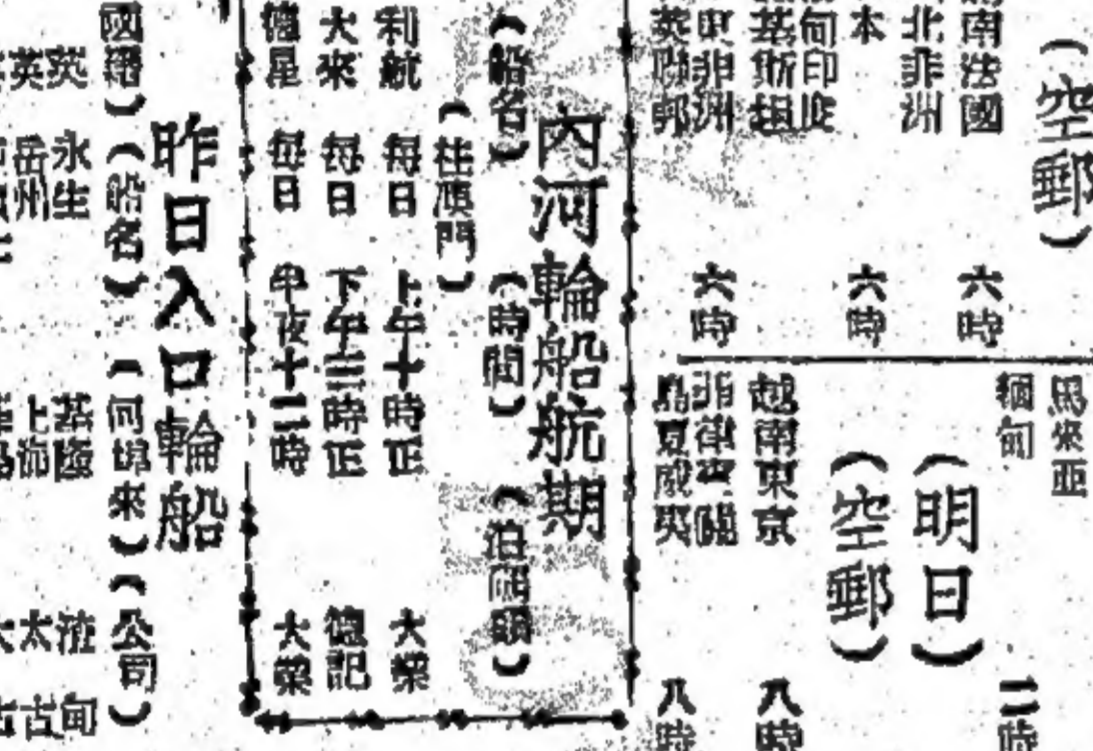 (空郵)
南法國
六時
北非洲
本
六時
甸印度
基斯坦
中非洲
六時
英聯邦
馬來亞
緬甸
二時
(明日)
(空郵)
越南東京
八時
非律賓
八時
夏威夷
內河輪船航期
(船名)
(時間)
(泊碼頭)
(往澳門)
利航 每日 上午十時正 大業
大來 每日 下午三時正 德記
德星 每日 十二時 大業
昨日入口輪船
國籍)(船名)
(何埠來)(公司)
英 永生 基隆 渣甸
英 岳州 上海 太古